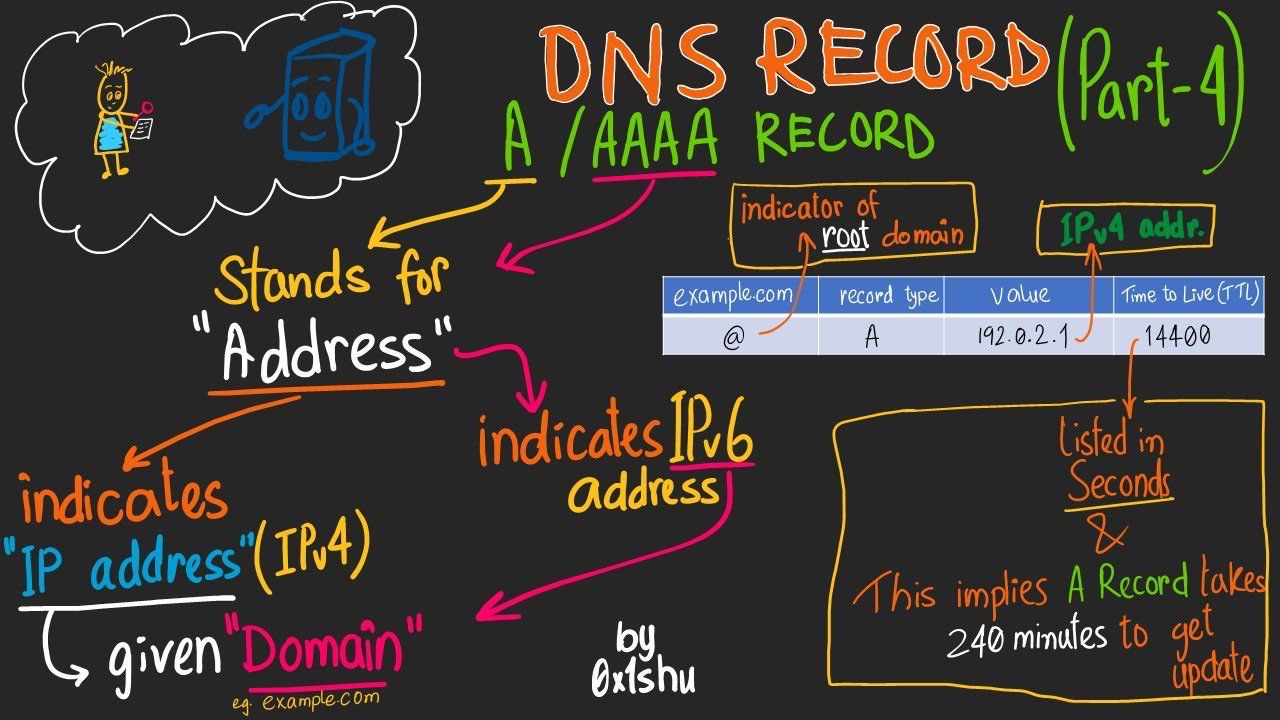 DNS RECORD (Part-4)
A / AAAA RECORD
Stands for
"Address"
indicates
"IP address" (IPv4)
given "Domain"
eg. example.com
indicates IPv6
address
indicator of
root domain
IPv4 addr.
example.com record type Value Time to Live (TTL)
@ A 192.0.2.1 14400
Listed in
Seconds
&
This implies A Record takes
240 minutes to get
update
by
0x1shu